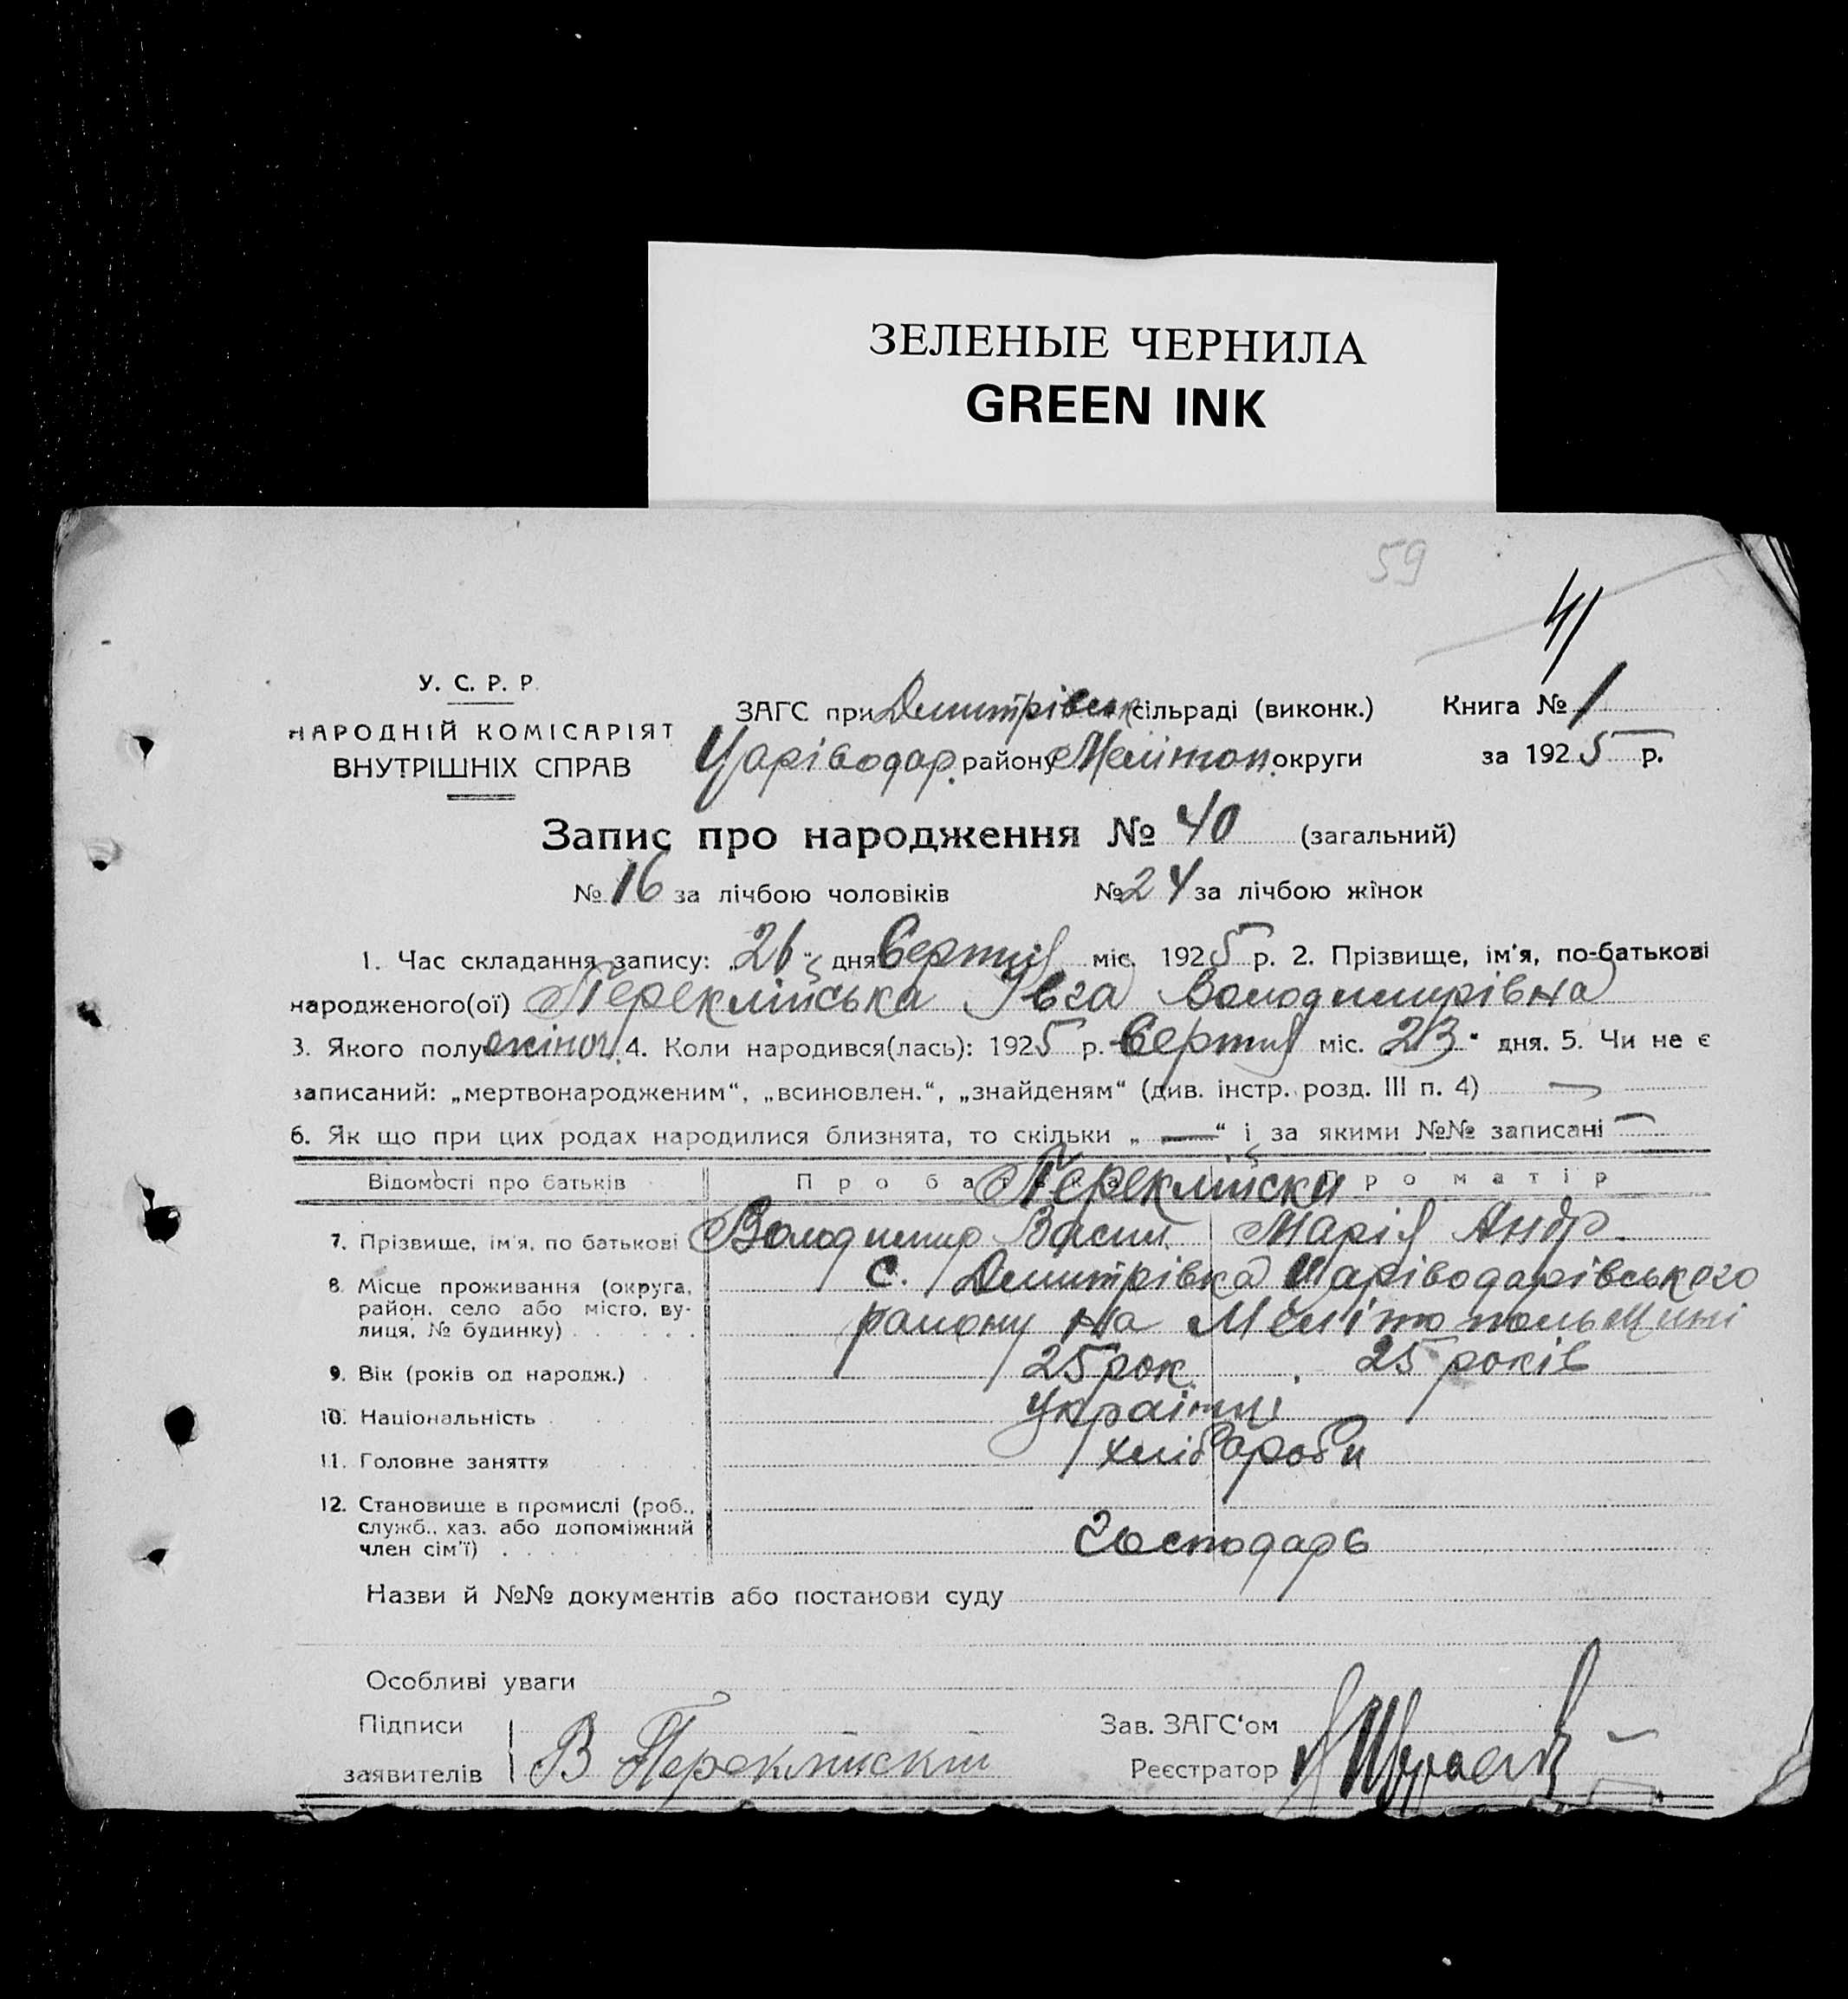 ЗЕЛЕНЫЕ ЧЕРНИЛА
GREEN INK
59
41
У. С. Р. Р.
НАРОДНІЙ КОМІСАРІЯТ
ВНУТРІШНІХ СПРАВ
ЗАГС при Дмитрівськ сільраді (виконк.)
Царіводар. району Мелітоп. округи
Книга № 1
за 1925 р.
Запис про народження № 40 (загальний)
№ 16 за лічбою чоловіків № 24 за лічбою жінок
1. Час складання запису: „26“ дня Серпня міс. 1925 р. 2. Прізвище, ім'я, по-батькові
народженого(ої) Переклійська Івга Володимирівна
3. Якого полу жіноч. 4. Коли народився(лась): 1925 р. Серпня міс. „23“ дня. 5. Чи не є
записаний: „мертвонародженим“, „всиновлен.“, „знайденям“ (див. інстр. розд. III п. 4) —
6. Як що при цих родах народилися близнята, то скільки „ — “ і за якими №№ записані —
Відомості про батьків Про батька Про матір
Переклійски
7. Прізвище, ім'я, по батькові Володимир Васил. Марія Андр.
8. Місце проживання (округа, с. Дмитрівка Царіводарівського
район, село або місто, ву-
лиця, № будинку) району на Мелітопольщині
9. Вік (років од народж.) 25 рок. 25 років
10. Національність Українці
11. Головне заняття хлібороби
12. Становище в промислі (роб.,
служб., хаз. або допоміжний
член сім'ї) Господарь
Назви й №№ документів або постанови суду
Особливі уваги
Підписи Зав. ЗАГС'ом
заявителів В Переклійский Реєстратор